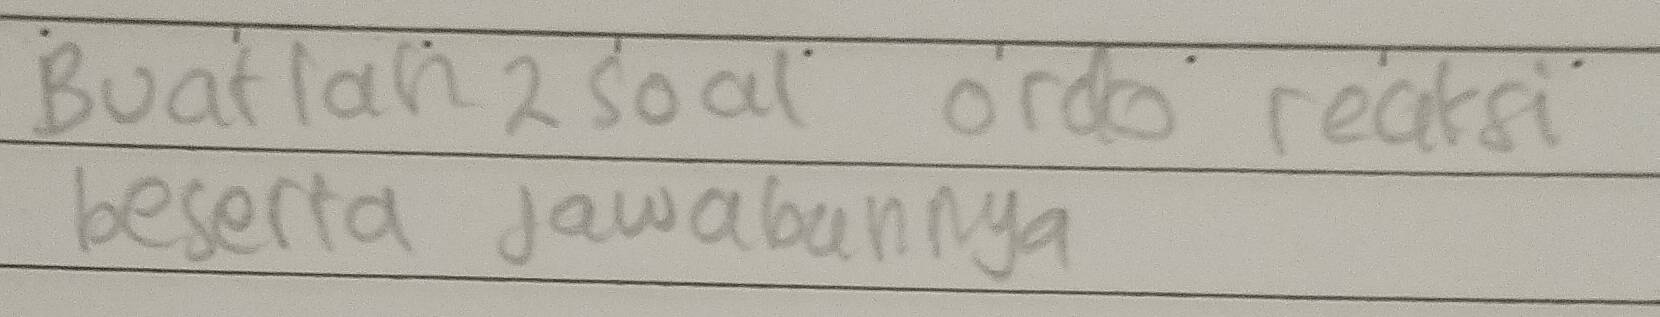 Buatlah 2 soal ordo reaksi
beserta jawabannya